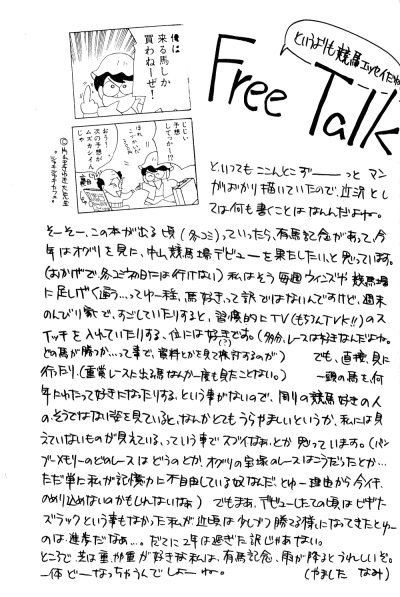 俺は
来る馬しか
買わねーぜ!
というよりも競馬エッセイだね
Free Talk
じじい
予想
してっかー!?
おう
次の予想が
ムズカシイん
じゃ
と、いってもここんとこずーーっと マン
ガばかり描いていたので、近況とし
ては何も書くことはなんだよね。
そーそー、この本が出る頃(冬コミ)っていったら、有馬記念があって、今
年はオグリを見に、中山競馬場デビューを果たしたいと思っています。
(おかげで、冬コミ初日には行けない) 私はそう毎週ウインズや競馬場
に足しげく通う…ってゆー程、馬好きって訳ではないんですけど、週末
のんびり家で、すごしていたりすると、習慣的にTV(もちろんTVK!!)のス
イッチを入れていたりする、位には好きです。(多分、レースは好きなんだよね。
どの馬が勝つか…って事で、資料とかを見て検討するのが(?)) でも、直接、見に
行ったり、(重賞レースに出る馬なんか一度も見たことない。) 一頭の馬を、何
年にわたって好きになったりする、という事がないので、周りの競馬好きの人
の、そうではない姿を見ていると、なんかとてもうらやましいというか、私には見
えていないものが見えている、っていう事でスゴイなぁ、とか思っています。(バン
ブーメモリーのどのレースはどうのとか、オグリの宝塚のレースはこうだったとか…
ただ単に私が記憶力に不自由している奴なんだ、とゆー理由から今イチ、
のめり込めないのかもしれないなぁ) でもまあ、デビューしたての頃はビギナー
ズラックという事もなかった私が近頃は 少しづつ勝てる様になってきたとゆー
のは、進歩だなぁ…。だてに2年は過ぎた訳じゃあない。
ところで、芝は重、ダ重が好きな私は、有馬記念、雨が降るとうれしいぞ。
一体どーなっちゃうんでしょーねー。 (やました なみ)